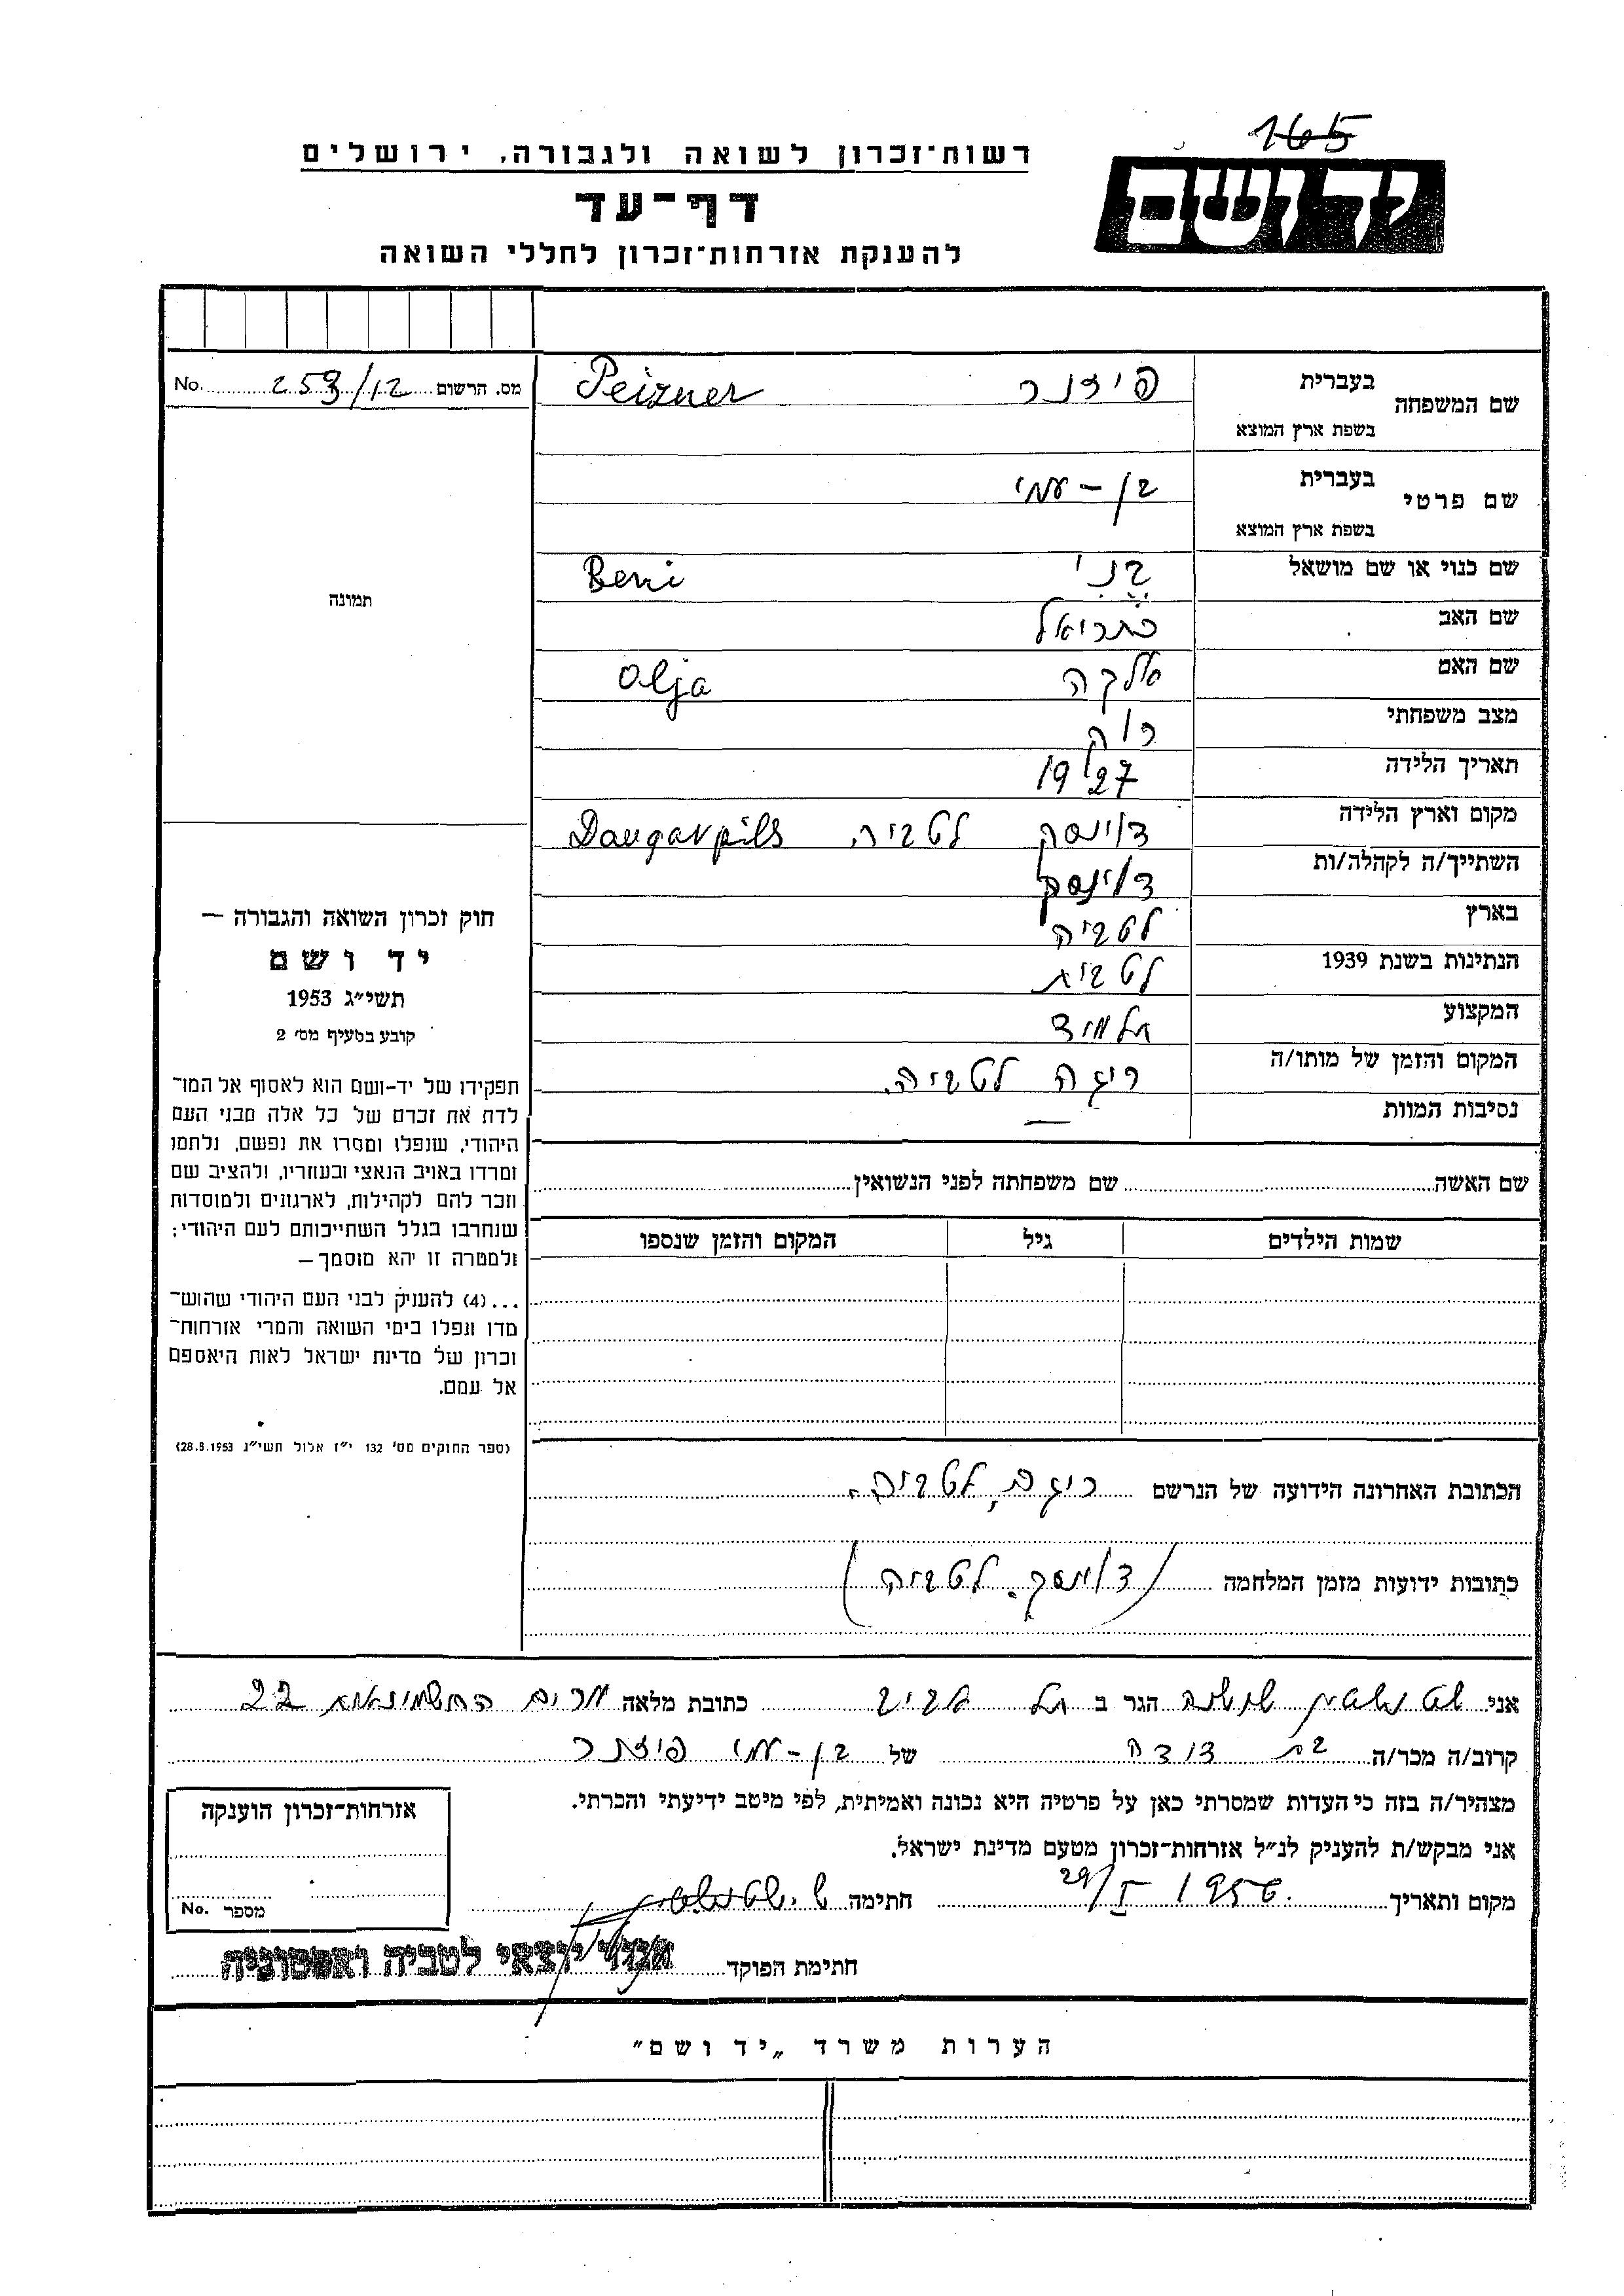 165
יד ושם
רשות־זכרון לשואה ולגבורה, ירושלים
דף־עד
להענקת אזרחות־זכרון לחללי השואה
מס. הרשום 253/12 No.
שם המשפחה בעברית פיזנר Peizner
בשפת ארץ המוצא
שם פרטי בעברית בן-עמי
בשפת ארץ המוצא
שם כנוי או שם מושאל בני Beni
שם האב כתריאל
שם האם אלקה Olja
מצב משפחתי רוק
תאריך הלידה 1927
מקום וארץ הלידה דוינסק לטביה, Daugavpils
השתייך/ה לקהלה/ות דוינסק
בארץ לטביה
הנתינות בשנת 1939 לטבית
המקצוע תלמיד
המקום והזמן של מותו/ה ריגה לטביה.
נסיבות המוות —
תמונה
חוק זכרון השואה והגבורה —
יד ושם
תשי״ג 1953
קובע בסעיף מס׳ 2
תפקידו של יד-ושם הוא לאסוף אל המו־
לדת את זכרם של כל אלה מבני העם
היהודי, שנפלו ומסרו את נפשם, נלחמו
ומרדו באויב הנאצי ובעוזריו, ולהציב שם
וזכר להם לקהילות, לארגונים ולמוסדות
שנחרבו בגלל השתייכותם לעם היהודי;
ולמטרה זו יהא מוסמך —
...(4) להעניק לבני העם היהודי שהוש־
מדו ונפלו בימי השואה והמרי אזרחות־
זכרון של מדינת ישראל לאות היאספם
אל עמם.
(ספר החוקים מס׳ 132 י״ז אלול תשי״ג 28.8.1953)
שם האשה שם משפחתה לפני הנשואין
שמות הילדים גיל המקום והזמן שנספו
הכתובת האחרונה הידועה של הנרשם ריגה, לטביה.
כתובות ידועות מזמן המלחמה (דוינסק. לטביה)
אני שושנה הגר ב תל אביב כתובת מלאה החשמונאים 22
קרוב/ה מכר/ה בת דודה של בן-עמי פיזנר
מצהיר/ה בזה כי העדות שמסרתי כאן על פרטיה היא נכונה ואמיתית, לפי מיטב ידיעתי והכרתי.
אני מבקש/ת להעניק לנ״ל אזרחות־זכרון מטעם מדינת ישראל.
מקום ותאריך 29/I 1956. חתימה
חתימת הפוקד אגוד יוצאי לטביה ואסטוניה
אזרחות־זכרון הוענקה
מספר No.
הערות משרד „יד ושם״